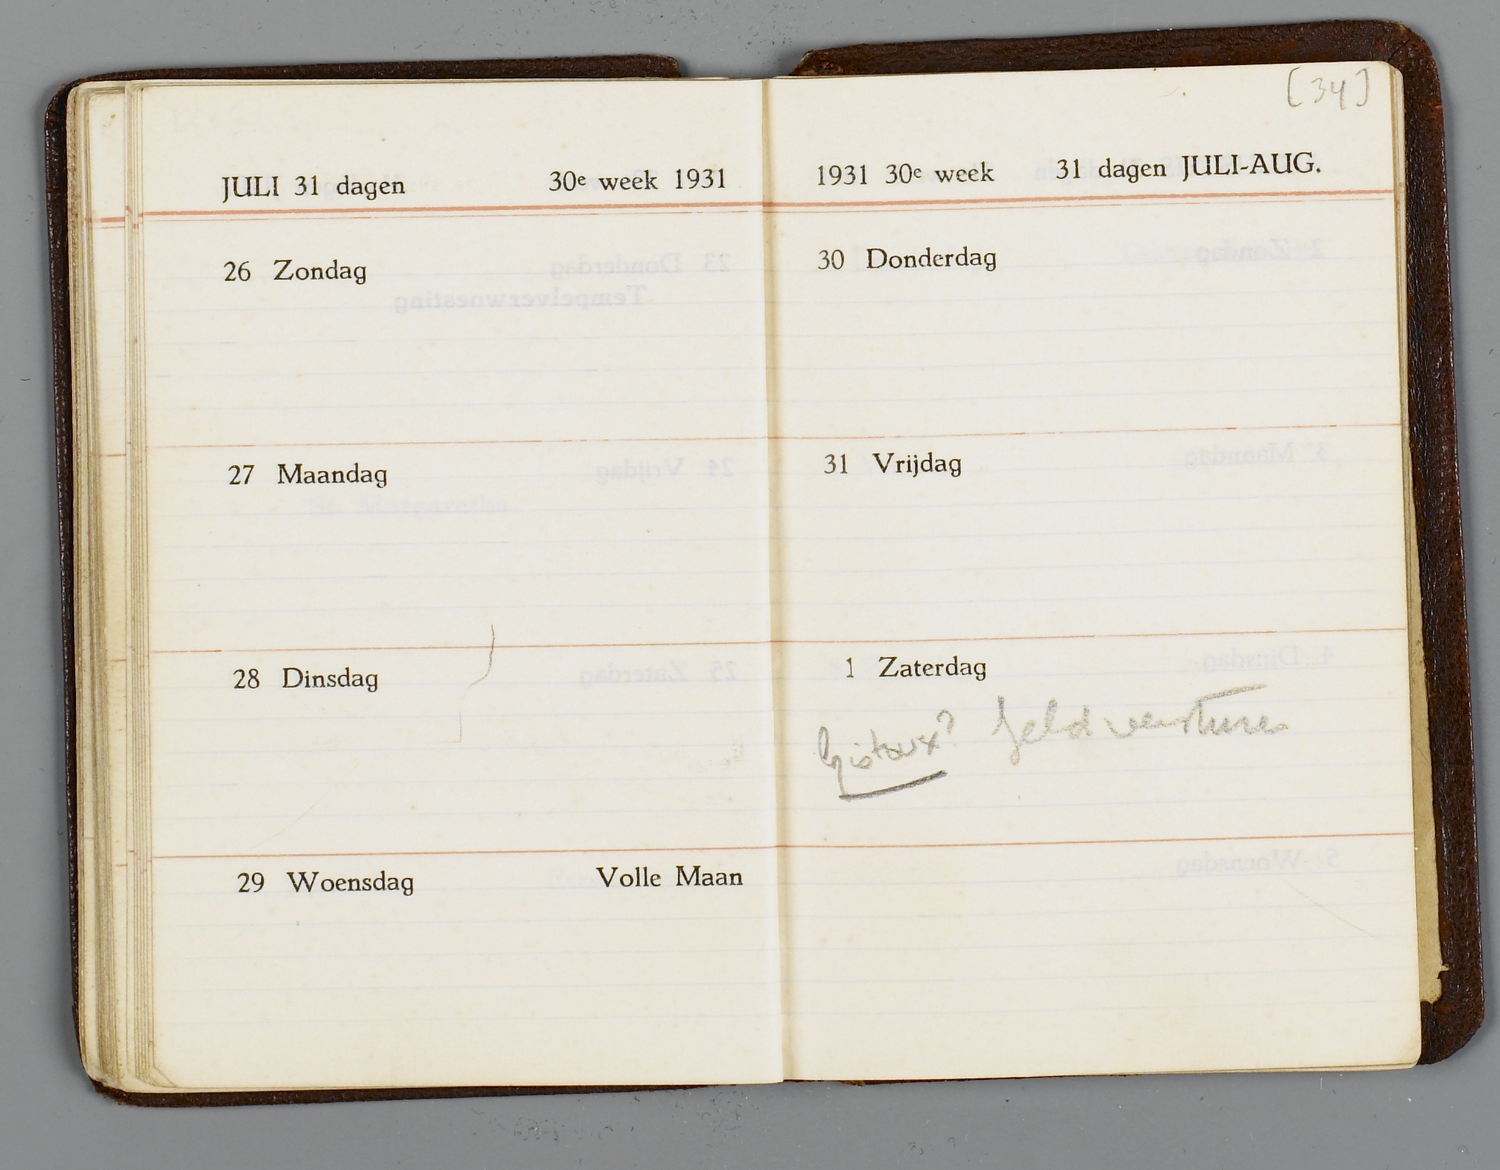 JULI 31 dagen 30e week 1931
26 Zondag
27 Maandag
28 Dinsdag
29 Woensdag Volle Maan
[34]
1931 30e week 31 dagen JULI-AUG.
30 Donderdag
31 Vrijdag
1 Zaterdag
geld versturen